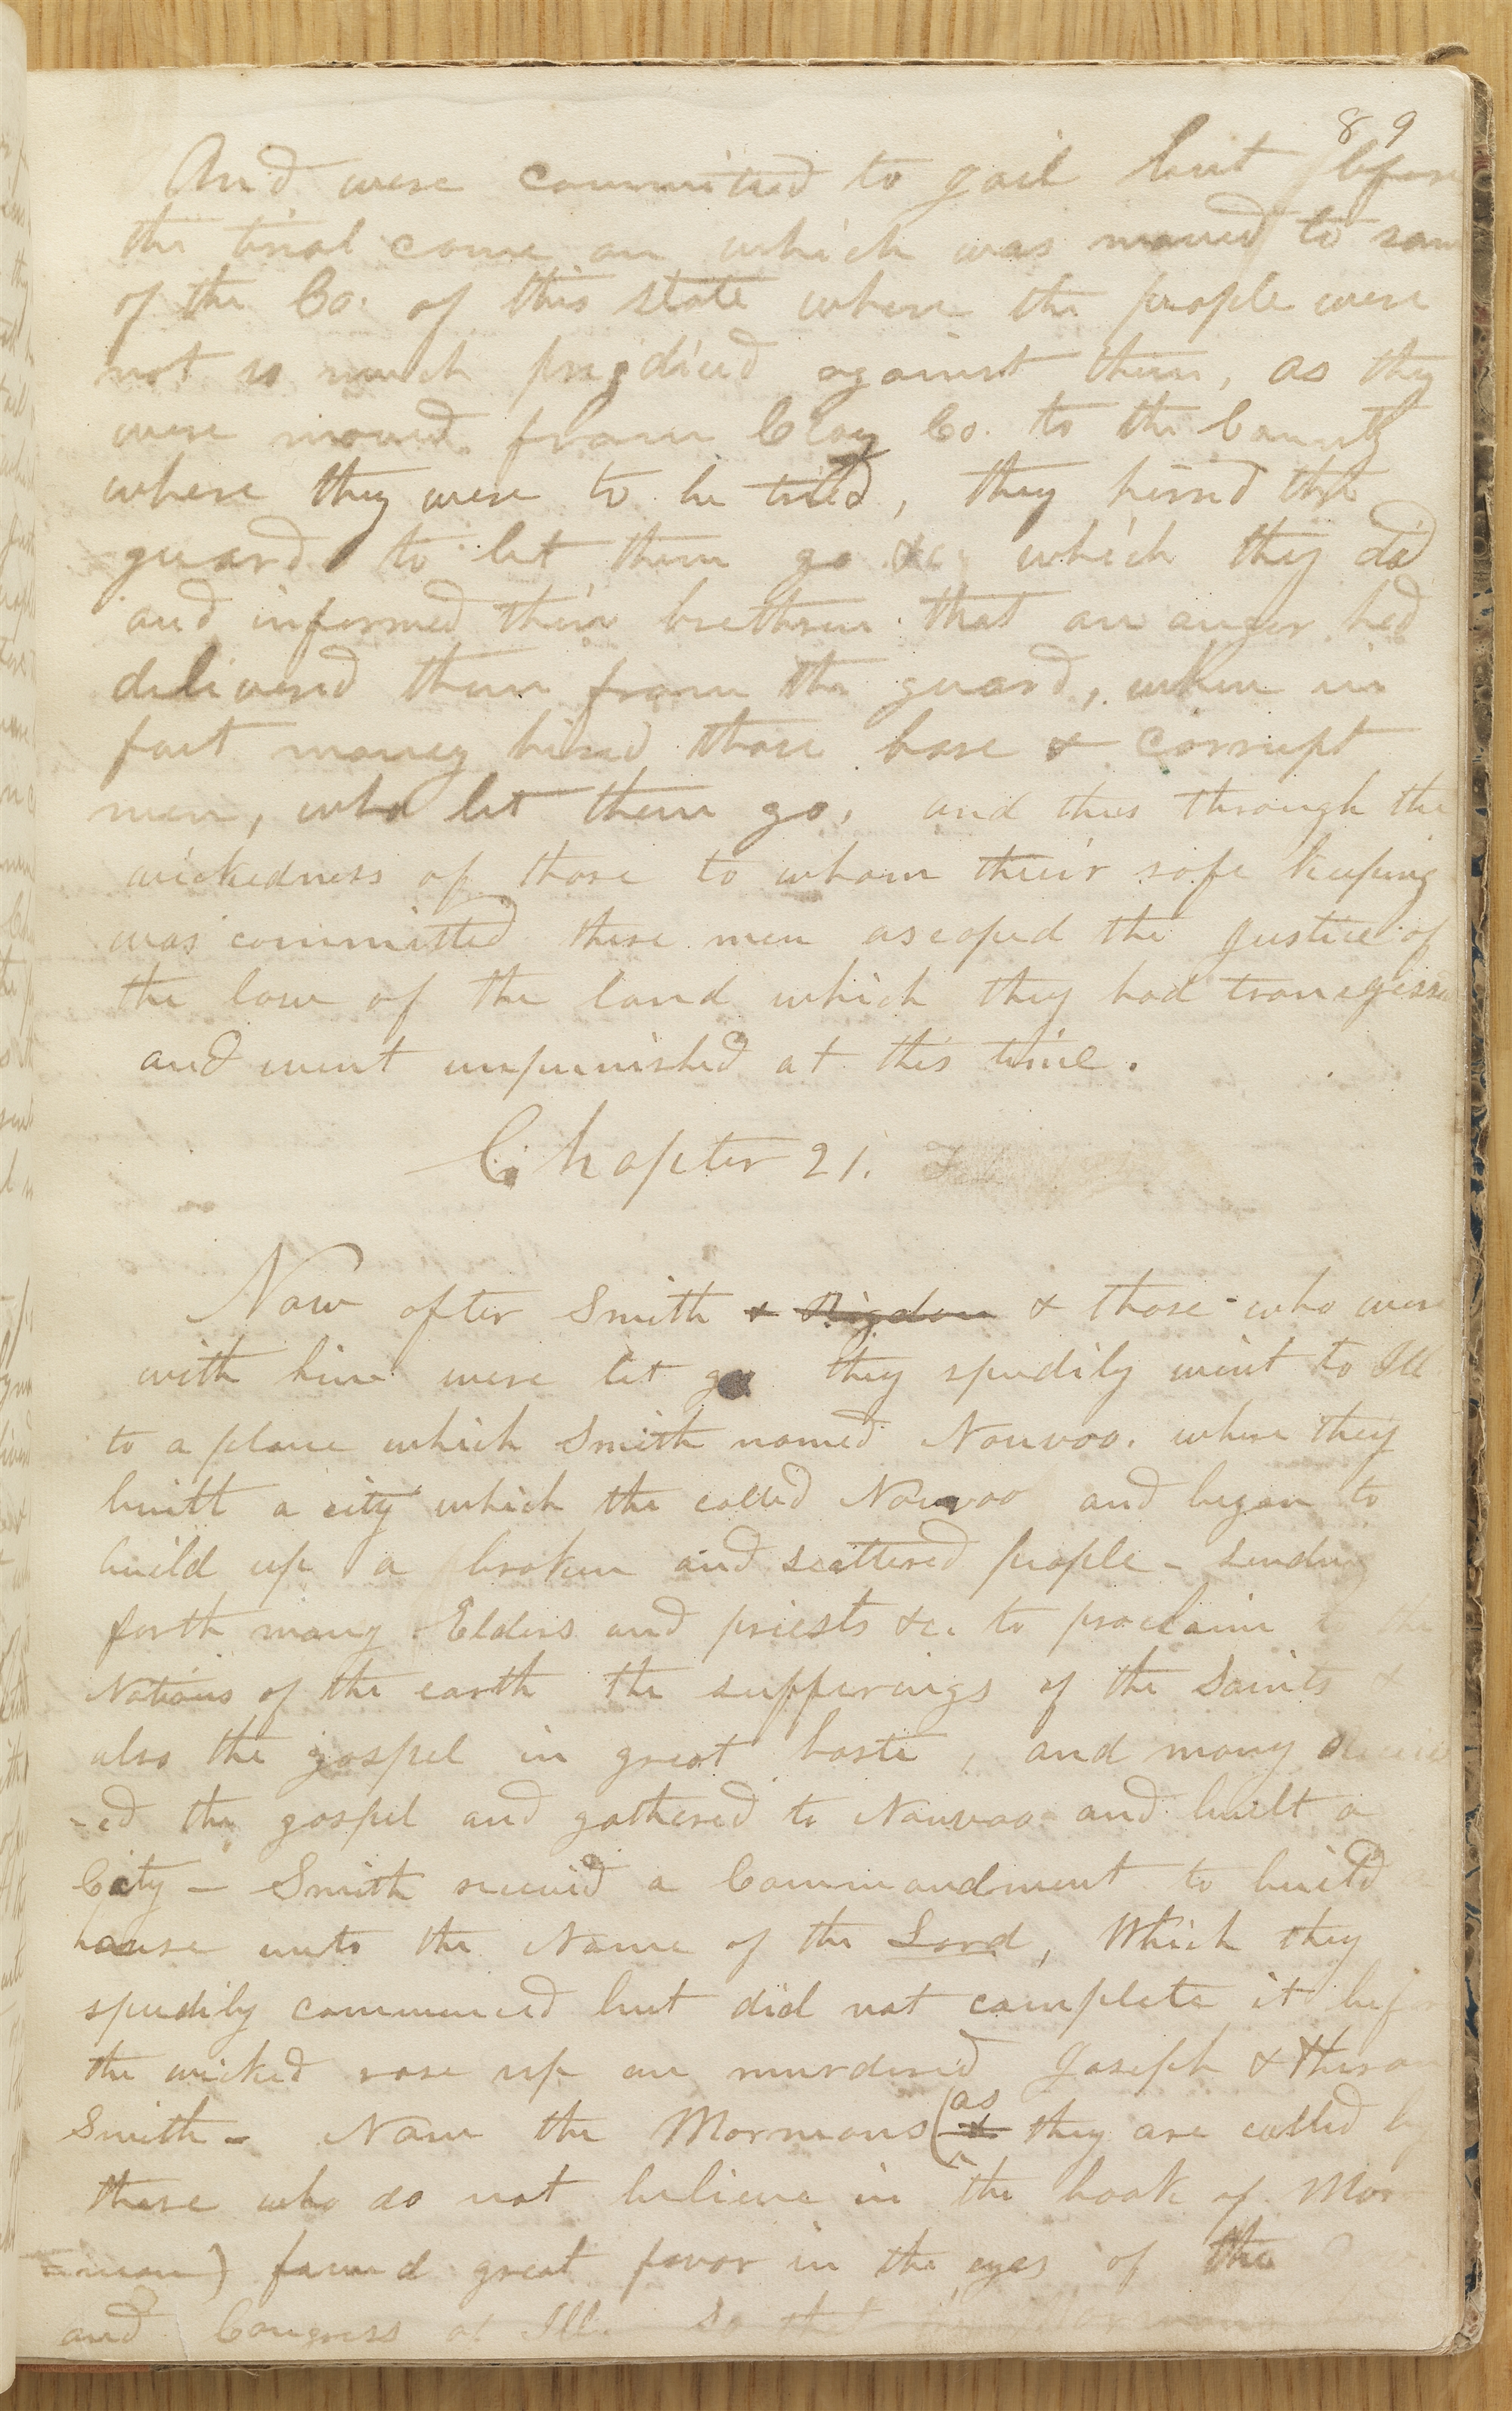 89
And were committed to gail but before
the trial come on which was moved to som
of the Co. of this state where the people were
not so much prejdiced against them, as they
were moved from Clay Co. to the County
where they were to be tried, they hired the
guard to let them go &c which they did
and informed their brethren that an anger hed
delivered them from the guard, when in
fact money hired those base & corrupt
men, who let them go, and thus through the
wickedness of those to whom their safe keeping
was committed these men ascaped the justice of
the law of the land which they had transgress
and went unpunished at this time.
Chapter 21.
Now after Smith & Rigdon & those who were
with him were let go they spedily went to Ill
to a place which Smith named Nauvoo. where they
built a city which the called Nauvoo and began to
build up a broken and scattered people - sending
forth many Elders and priests &c. to proclaim to the
Nations of the earth the sufferings of the Saints &
also the gospel in great haste, and many
-ed the gospel and gathered to Nauvoo and built a
City - Smith received a Commandment to build a
house unto the Name of the Lord, Which they
spedily commenced but did not complete it befor
the wicked rose up an murdered Joseph & Hiram
Smith - Now the Mormons (as they are called by
those who do not believe in the book of Mor
=mon) found great favor in the eyes of the
and Congress of Ill. So that